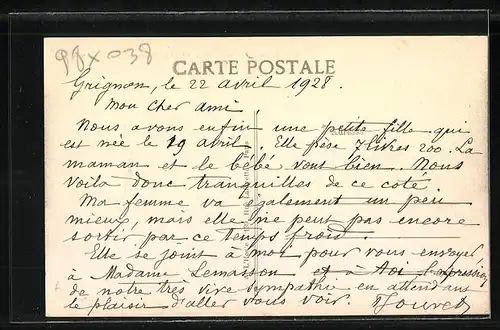 98x038
CARTE POSTALE
Grignon, le 22 avril 1928.
Mon cher ami
Nous avons enfin une petite fille qui
est née le 19 avril. Elle pèse 7 livres 200. La
maman et le bébé vont bien. Nous
voila donc tranquilles de ce coté.
Ma femme va également un peu
mieux, mais elle ne peut pas encore
sortir par ce temps froid.
Elle se joint à moi pour vous envoyer
à Madame Lemasson et à
de notre très vive sympathie en attendant
le plaisir d'aller vous voir.